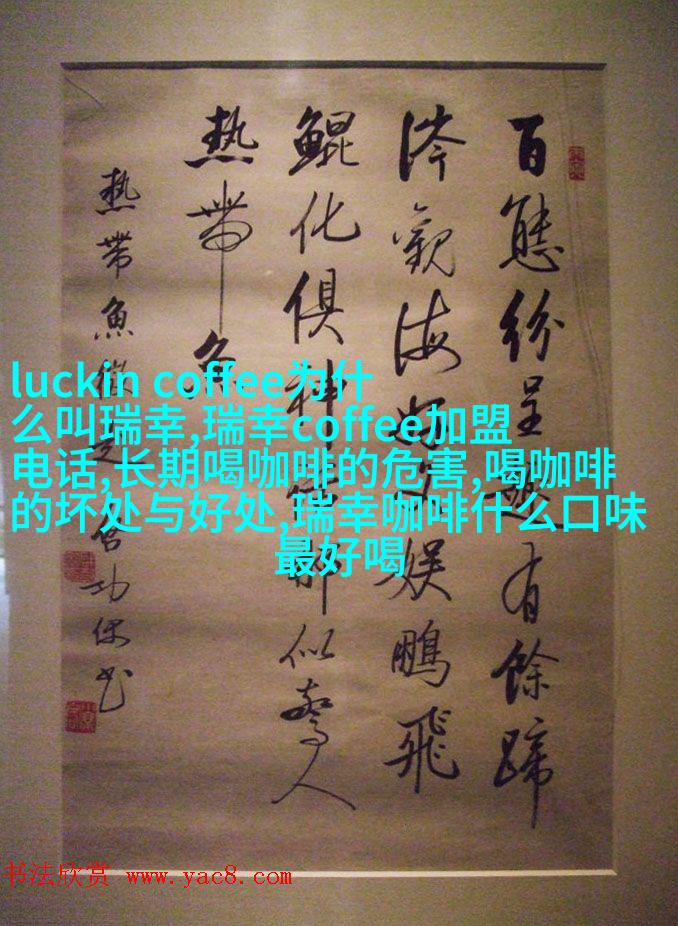 百態紛呈趣有餘蹄
涔觀海娛鵬飛
鯤化俱神似驚人
熱帶魚
熱帶魚 启功
luckin coffee为什
么叫瑞幸,瑞幸coffee加盟
电话,长期喝咖啡的危害,喝咖啡
的坏处与好处,瑞幸咖啡什么口味
最好喝
书法欣赏 www.yac8.com